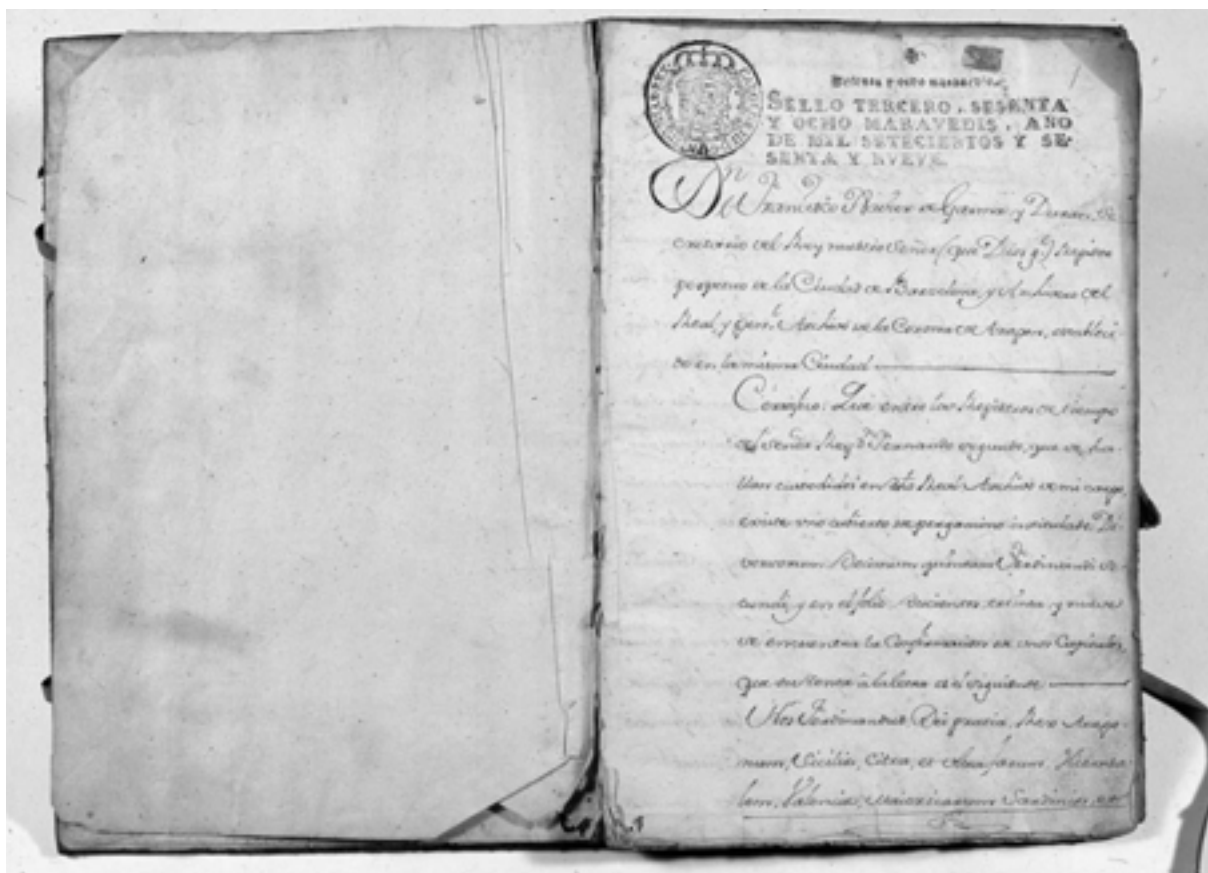 Sesenta y ocho maravedis
SELLO TERCERO, SESENTA
Y OCHO MARAVEDIS, AÑO
DE MIL SETECIENTOS Y SE-
SENTA Y NUEVE.
Dn Francisco Xavier de Garma y Duran, Se-
cretario del Rey nuestro Señor (que Dios g.e) Regidor
perpetuo de la Ciudad de Barcelona, y Archivero del
Real, y gen.l Archivo de la Corona de Aragon, estableci-
do en la misma Ciudad
Certifico: Que entre los Registros de tiempo
del señor Rey D.n Fernando segundo, que se ha-
llan custodidos en este Real Archivo de mi cargo,
existe uno cubierto de pergamino intitulado Di-
versorum Decimum quintum Ferdinandi Se-
cundi, y en el folio docientos treinta y nueve
se encuentra la Confirmacion de unos Capitulos,
que su tenor à la letra es el siguiente
Nos Ferdinandus Dei gratia, Rex Arago-
num, Siciliæ, Citra, et Ultra farum, Hierusa-
lem, Valenciæ, Maioricarum Sardiniæ, et